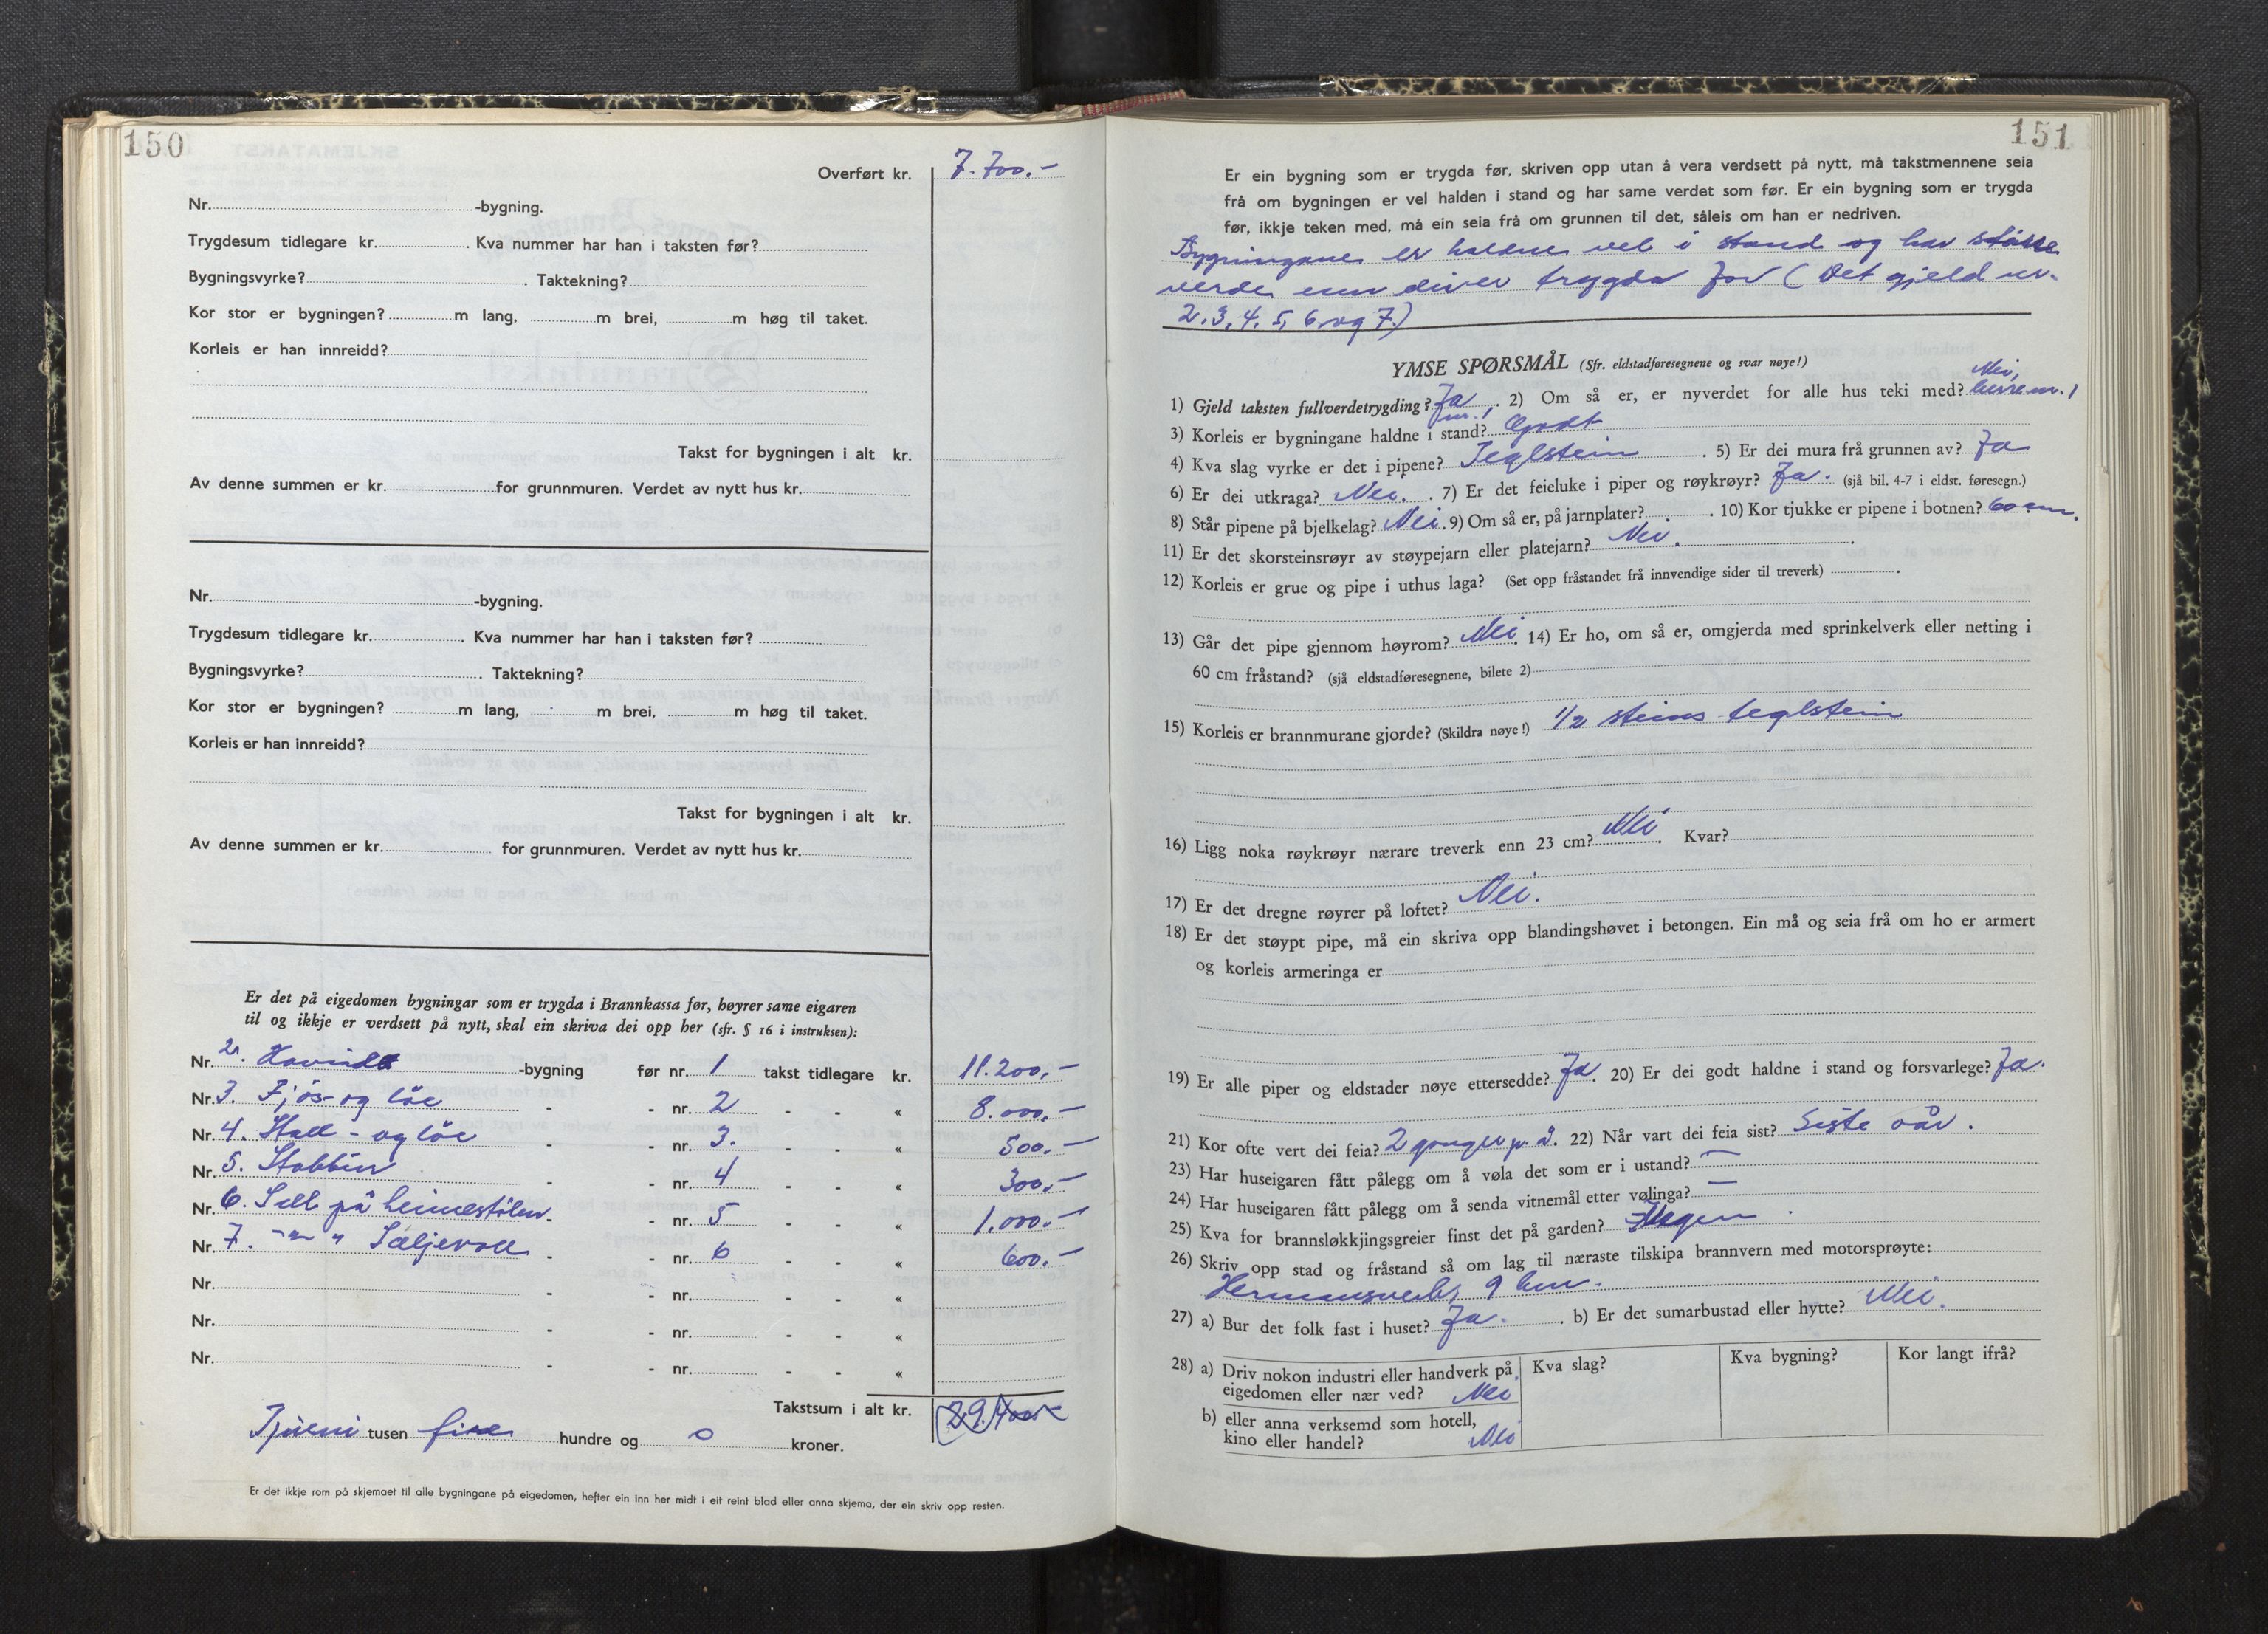 150
Overført kr. 7.700.-
Nr. -bygning.
Trygdesum tidlegare kr. . Kva nummer har han i taksten før?
Bygningsvyrke? . Taktekning?
Kor stor er bygningen? m lang, m brei, m høg til taket.
Korleis er han innreidd?
Takst for bygningen i alt kr.
Av denne summen er kr. for grunnmuren. Verdet av nytt hus kr.
Nr. -bygning.
Trygdesum tidlegare kr. . Kva nummer har han i taksten før?
Bygningsvyrke? . Taktekning?
Kor stor er bygningen? m lang, m brei, m høg til taket.
Korleis er han innreidd?
Takst for bygningen i alt kr.
Av denne summen er kr. for grunnmuren. Verdet av nytt hus kr.
Er det på eigedomen bygningar som er trygda i Brannkassa før, høyrer same eigaren
til og ikkje er verdsett på nytt, skal ein skriva dei opp her (sfr. § 16 i instruksen):
Nr. 2. -bygning før nr. 1 takst tidlegare kr. 11.200.-
Nr. 3. Fjøs- og löe - - nr. 2 - - « 8.000.-
Nr. 4. Stall - og löe - - nr. 3. - - « 500.-
Nr. 5. Stabbur - - nr. 4 - - « 300.-
Nr. 6. Sell på heimestölen - - nr. 5 - - « 1.000.-
Nr. 7. -"- " Säljevoll - - nr. 6 - - « 600.-
Nr. - - nr. - - «
Nr. - - nr. - - «
Nr. - - nr. - - «
Takstsum i alt kr. 29.400.-
Tjueni tusen fire hundre og 0 kroner.
Er det ikkje rom på skjemaet til alle bygningane på eigedomen, hefter ein inn her midt i eit reint blad eller anna skjema, der ein skriv opp resten.
151
Er ein bygning som er trygda før, skriven opp utan å vera verdsett på nytt, må takstmennene seia
frå om bygningen er vel halden i stand og har same verdet som før. Er ein bygning som er trygda
før, ikkje teken med, må ein seia frå om grunnen til det, såleis om han er nedriven.
Bygningane er haldne vel i stand og har større
verde enn dei er trygda for (Det gjeld nr.
2, 3, 4, 5, 6 og 7.)
YMSE SPØRSMÅL (Sfr. eldstadføresegnene og svar nøye!)
1) Gjeld taksten fullverdetrygding? Ja nr. 1, . 2) Om så er, er nyverdet for alle hus teki med? Nei, berre nr. 1
3) Korleis er bygningane haldne i stand? Godt
4) Kva slag vyrke er det i pipene? Teglstein . 5) Er dei mura frå grunnen av? Ja
6) Er dei utkraga? Nei. . 7) Er det feieluke i piper og røykrøyr? Ja. (sjå bil. 4-7 i eldst. føresegn.)
8) Står pipene på bjelkelag? Nei. 9) Om så er, på jarnplater? . 10) Kor tjukke er pipene i botnen? 60 cm.
11) Er det skorsteinsrøyr av støypejarn eller platejarn? Nei. .
12) Korleis er grue og pipe i uthus laga? (Set opp fråstandet frå innvendige sider til treverk) .
13) Går det pipe gjennom høyrom? Nei. 14) Er ho, om så er, omgjerda med sprinkelverk eller netting i
60 cm fråstand? (sjå eldstadføresegnene, bilete 2)
15) Korleis er brannmurane gjorde? (Skildra nøye!) 1/2 steins teglstein
16) Ligg noka røykrøyr nærare treverk enn 23 cm? Nei . Kvar?
17) Er det dregne røyrer på loftet? Nei.
18) Er det støypt pipe, må ein skriva opp blandingshøvet i betongen. Ein må og seia frå om ho er armert
og korleis armeringa er
19) Er alle piper og eldstader nøye ettersedde? Ja. 20) Er dei godt haldne i stand og forsvarlege? Ja.
21) Kor ofte vert dei feia? 2 gonger p. å. 22) Når vart dei feia sist? Siste vår.
23) Har huseigaren fått pålegg om å vøla det som er i ustand? —
24) Har huseigaren fått pålegg om å senda vitnemål etter vølinga? —
25) Kva for brannsløkkjingsgreier finst det på garden? Ingen .
26) Skriv opp stad og fråstand så om lag til næraste tilskipa brannvern med motorsprøyte:
Hermansverk, 9 km.
27) a) Bur det folk fast i huset? Ja. . b) Er det sumarbustad eller hytte? Nei.
28) a) Driv nokon industri eller handverk på eigedomen eller nær ved? Nei
Kva slag?
Kva bygning?
Kor langt ifrå?
b) eller anna verksemd som hotell,
kino eller handel? Nei